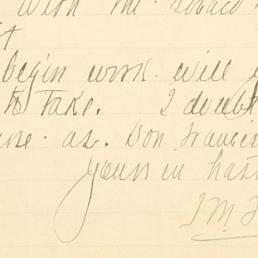 with Mr.
it
begin work will
to take. I doubt
as. Don Francis
yours in hast